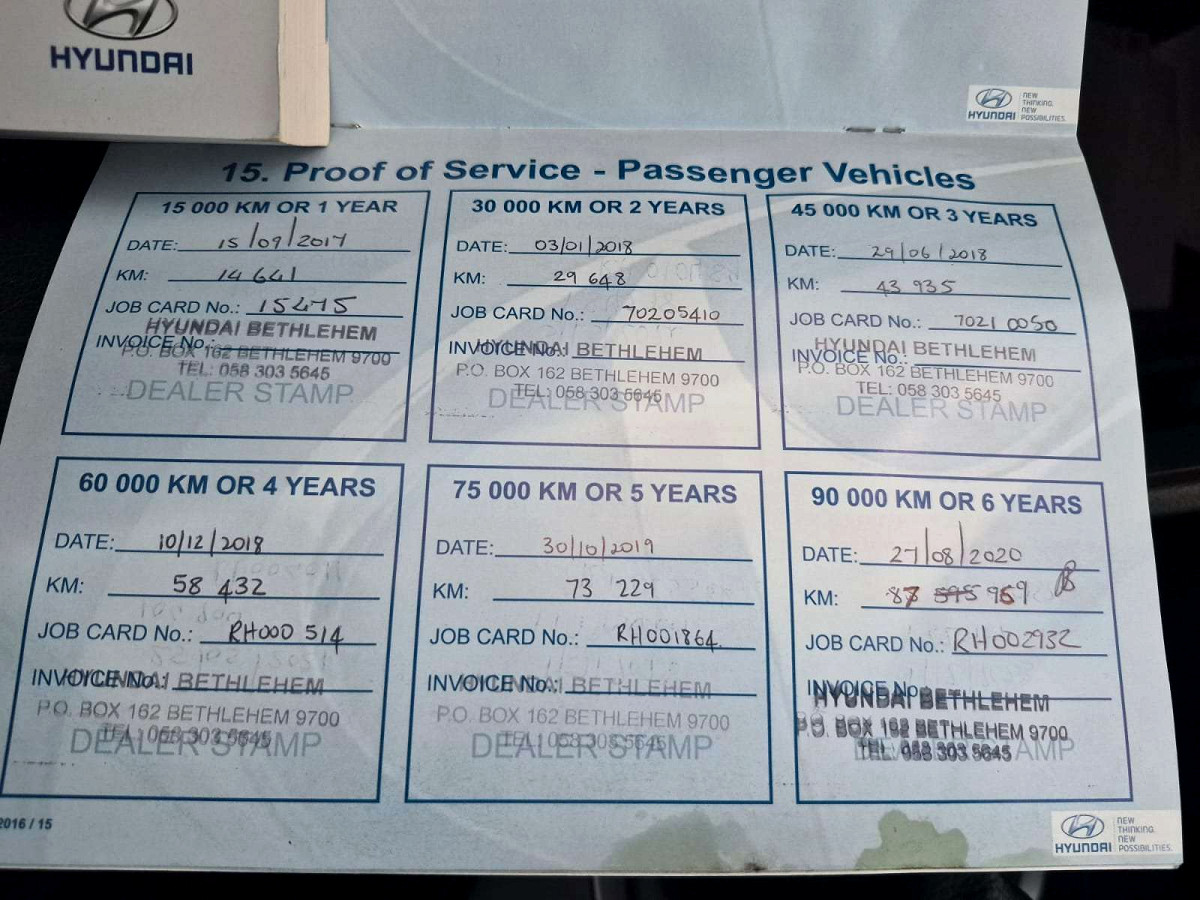 HYUNDAI
HYUNDAI
NEW
THINKING.
NEW
POSSIBILITIES.
15. Proof of Service - Passenger Vehicles
15 000 KM OR 1 YEAR
DATE: 15/09/2017
KM: 14 641
JOB CARD No.: 15475
INVOICE No.:
HYUNDAI BETHLEHEM
P.O. BOX 162 BETHLEHEM 9700
TEL: 058 303 5645
DEALER STAMP
30 000 KM OR 2 YEARS
DATE: 03/01/2018
KM: 29 648
JOB CARD No.: 70205410
INVOICE No.:
HYUNDAI BETHLEHEM
P.O. BOX 162 BETHLEHEM 9700
TEL: 058 303 5645
DEALER STAMP
45 000 KM OR 3 YEARS
DATE: 29/06/2018
KM: 43 935
JOB CARD No.: 7021 0050
HYUNDAI BETHLEHEM
INVOICE No.:
P.O. BOX 162 BETHLEHEM 9700
TEL: 058 303 5645
DEALER STAMP
60 000 KM OR 4 YEARS
DATE: 10/12/2018
KM: 58 432
JOB CARD No.: RH000 514
INVOICE No.:
HYUNDAI BETHLEHEM
P.O. BOX 162 BETHLEHEM 9700
TEL: 058 303 5645
DEALER STAMP
75 000 KM OR 5 YEARS
DATE: 30/10/2019
KM: 73 229
JOB CARD No.: RH001864.
INVOICE No.:
HYUNDAI BETHLEHEM
P.O. BOX 162 BETHLEHEM 9700
TEL: 058 303 5645
DEALER STAMP
90 000 KM OR 6 YEARS
DATE: 27/08/2020
KM: 87 595 969
JOB CARD No.: RH002932
INVOICE No.:
HYUNDAI BETHLEHEM
P.O. BOX 162 BETHLEHEM 9700
TEL: 058 303 5645
DEALER STAMP
2016 / 15
HYUNDAI
NEW
THINKING.
NEW
POSSIBILITIES.